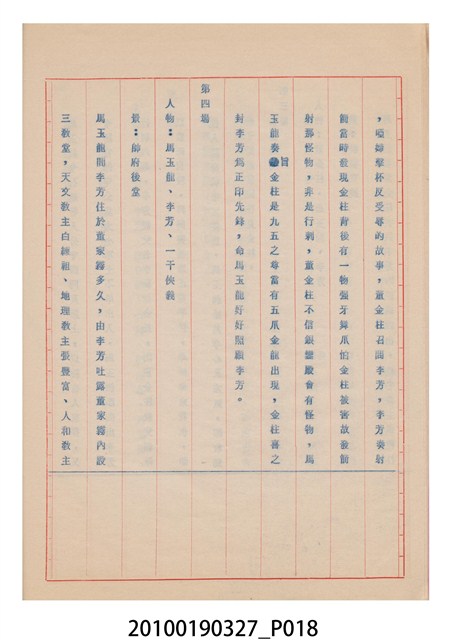 ，啞婦擊杯反受辱的故事，董金柱召問李芳，李芳奏射
箭當時發現金柱背後有一物彌牙舞爪怕金柱被害故發箭
射那怪物，非是行刺，董金柱不信銀鑾殿會有怪物，馬
玉龍奏旨金柱是九五之尊當有五爪金龍出現，金柱喜之
封李芳爲正印先鋒，命馬玉龍好好照顧李芳。
第四場
人物：馬玉龍、李芳、一干俠義
景：帥府後堂
馬玉龍問李芳住於董家霧多久，由李芳吐露董家霧內設
三教堂，天文教主白練祖、地理教主張豐富、人和教主
20100190327_P018